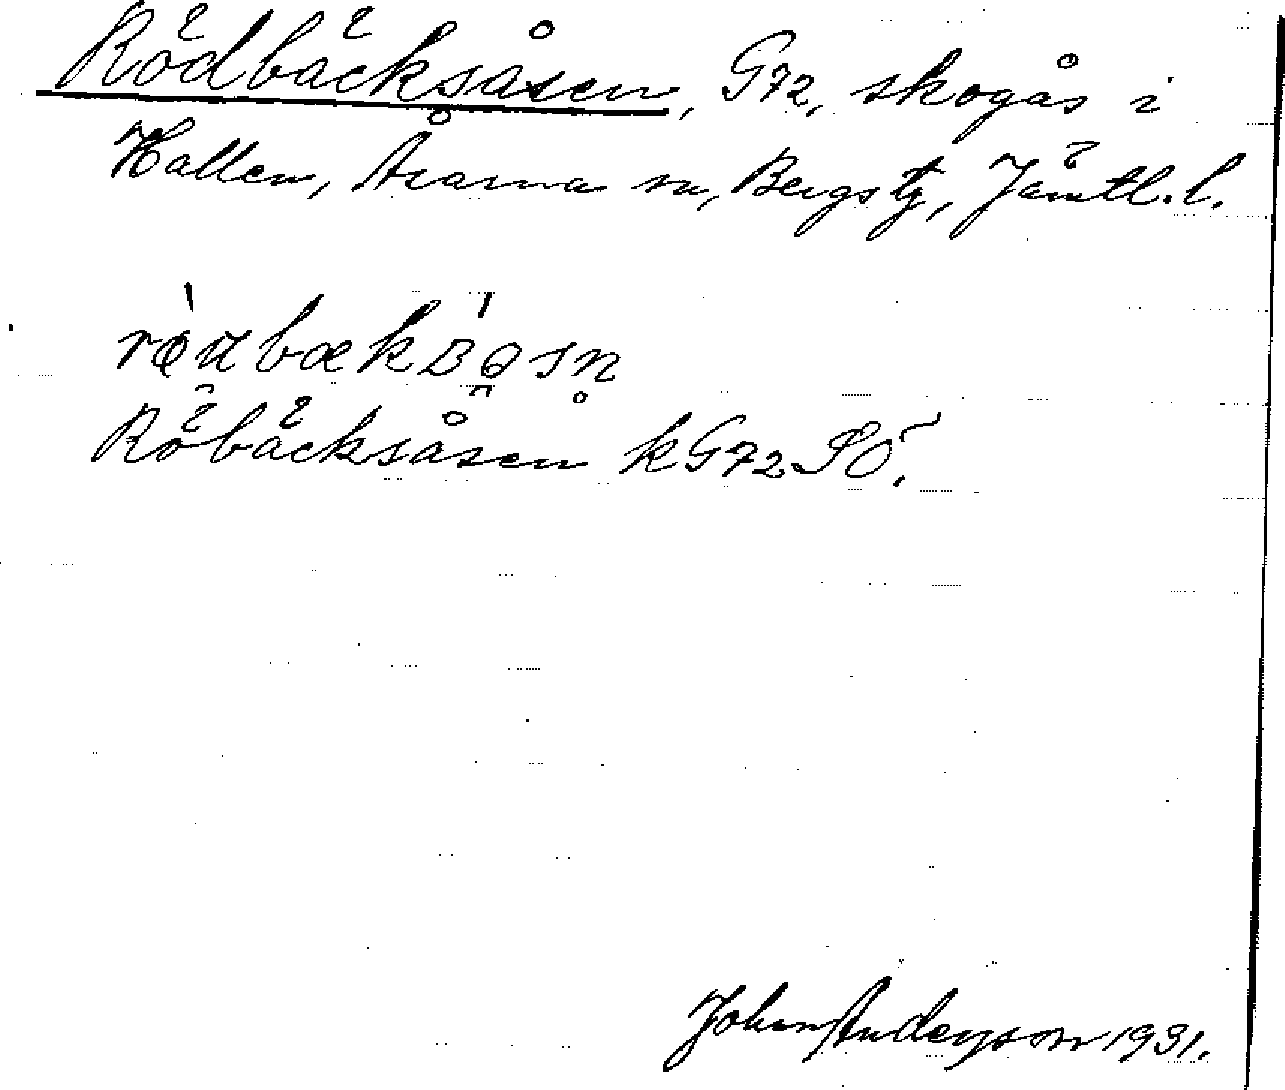 Rödbäcksåsen, G72, skogås i
Hallen, Åsarna sn, Bergs tg, Jämtl. l.
Röbäcksåsen kG72SÖ.
Johan Anderson 1931.